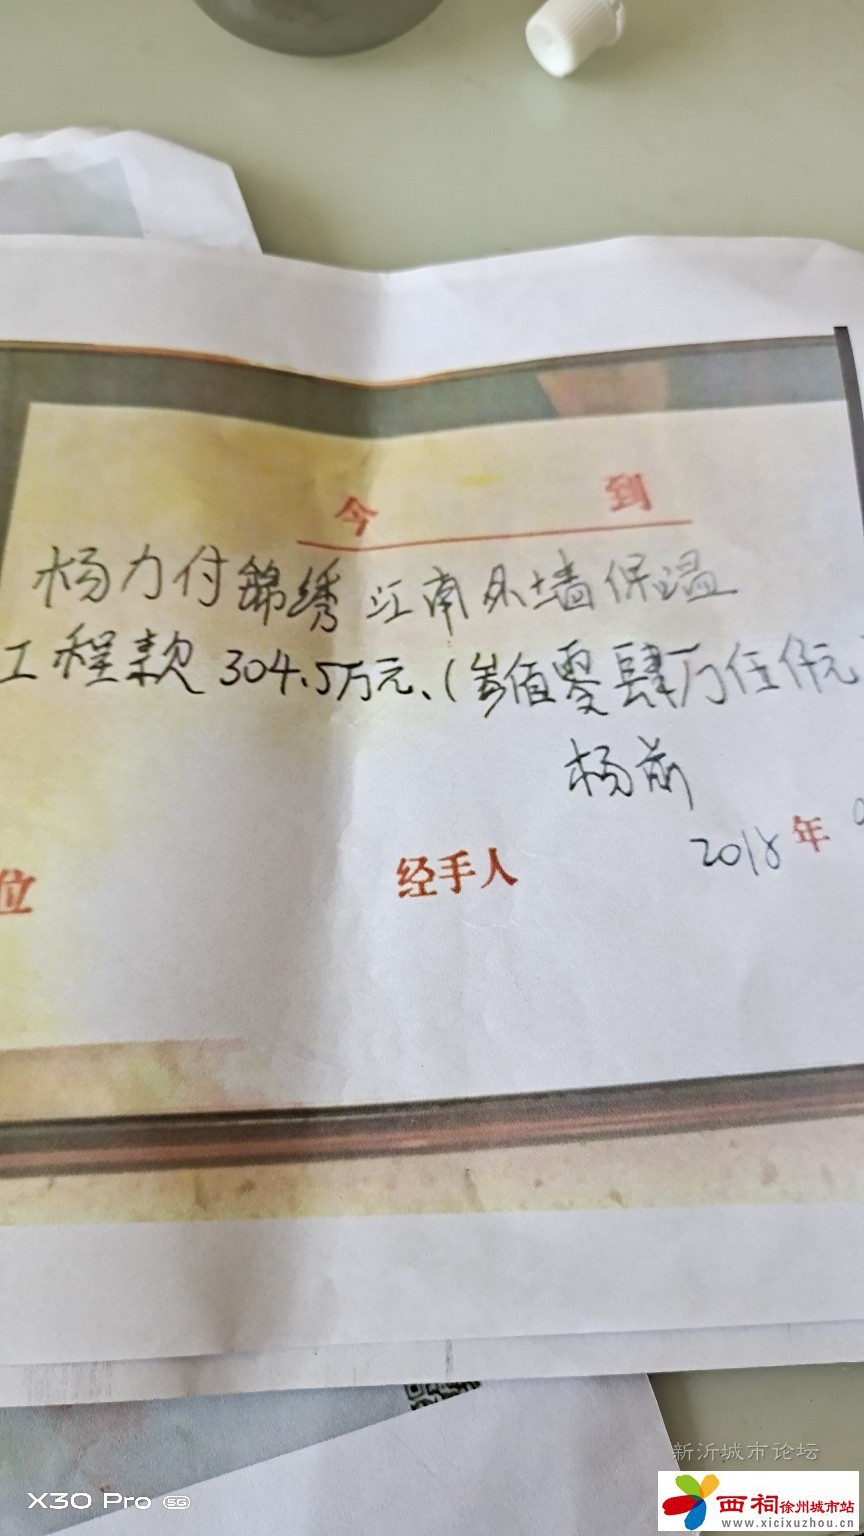 今 到
杨力付錦绣江南外墙保温
工程款304.5万元、(叁佰零肆万伍仟元
杨前
2018年
位 经手人
新沂城市论坛
X30 Pro 5G
西祠徐州城市站
www.xicixuzhou.cn